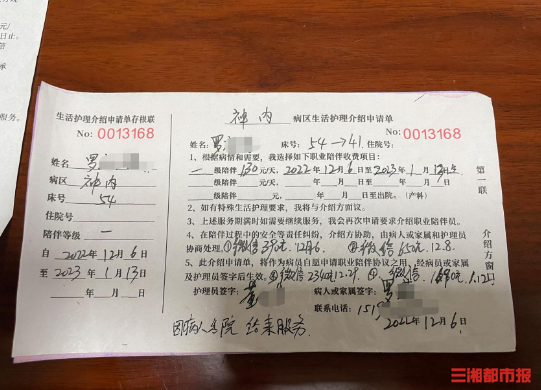 元/
日止。
服务。
生活护理介绍申请单存根联
No: 0013168
姓名 罗
病区 神内
床号 54
住院号
陪伴等级 一
自 2022 年 12 月 6 日
至 2023 年 1 月 13 日
年 月 日
神内 病区生活护理介绍申请单
No: 0013168
姓名: 罗 床号: 54→41 住院号:
1、根据病情和需要,我选择如下职业陪伴收费项目:
一 级陪伴 130 元/天, 2022 年 12 月 6 日至 2023 年 1 月 13 日
级陪伴 元/天, 年 月 日至 年 月 日
级陪伴 元/天, 年 月 日至出院。(产科)
2、如有特殊生活护理要求,我将与介绍方面议。
3、上述服务期满时如需要继续服务,我会再次申请要求介绍职业陪伴员。
4、在陪伴过程中的安全等责任纠纷,介绍方协助,由病人或家属和护理员
协商处理。①微信390元12月6 ②微信650元12.8.
5、此介绍申请单,将作为病员自愿申请职业陪伴协议之用,经病员或家属
及护理员签字后生效。③微信2340元12.29. ④微信1690元1.12日
护理员签字: 董 病人或家属签字: 罗
联系电话: 151
2022年12月6日
因病人出院 结束服务.
第一联
介绍方留
三湘都市报